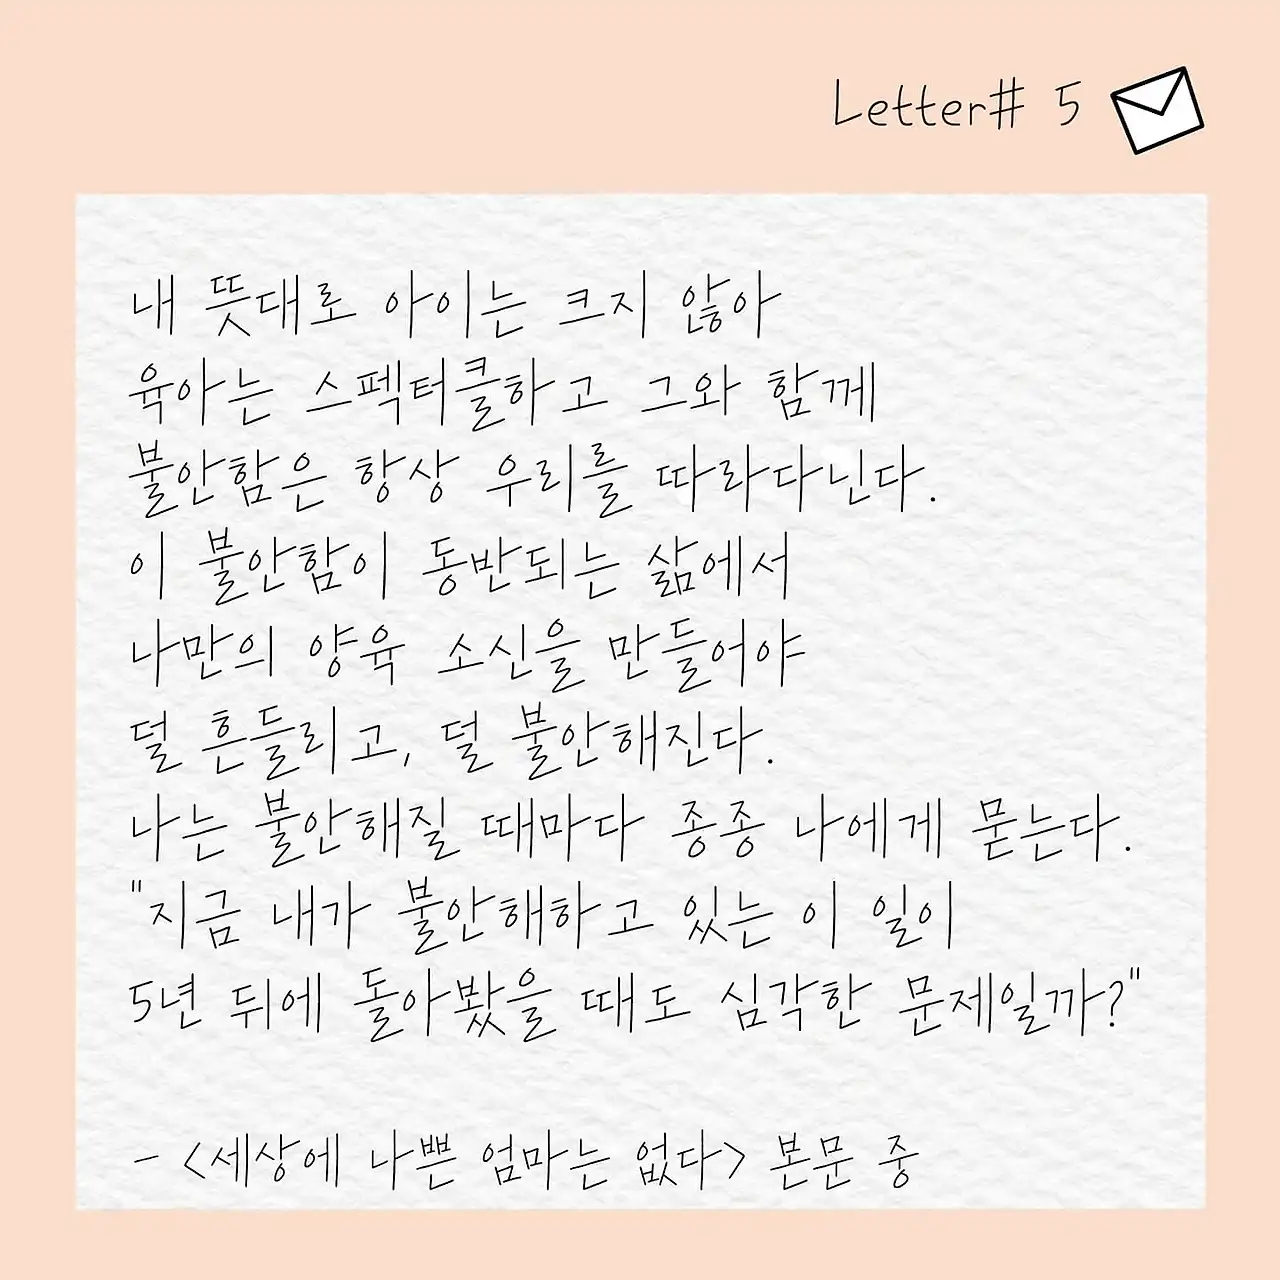 Letter# 5
내 뜻대로 아이는 크지 않아
육아는 스펙터클하고 그와 함께
불안함은 항상 우리를 따라다닌다.
이 불안함이 동반되는 삶에서
나만의 양육 소신을 만들어야
덜 흔들리고, 덜 불안해진다.
나는 불안해질 때마다 종종 나에게 묻는다.
"지금 내가 불안해하고 있는 이 일이
5년 뒤에 돌아봤을 때도 심각한 문제일까?"
- <세상에 나쁜 엄마는 없다> 본문 중